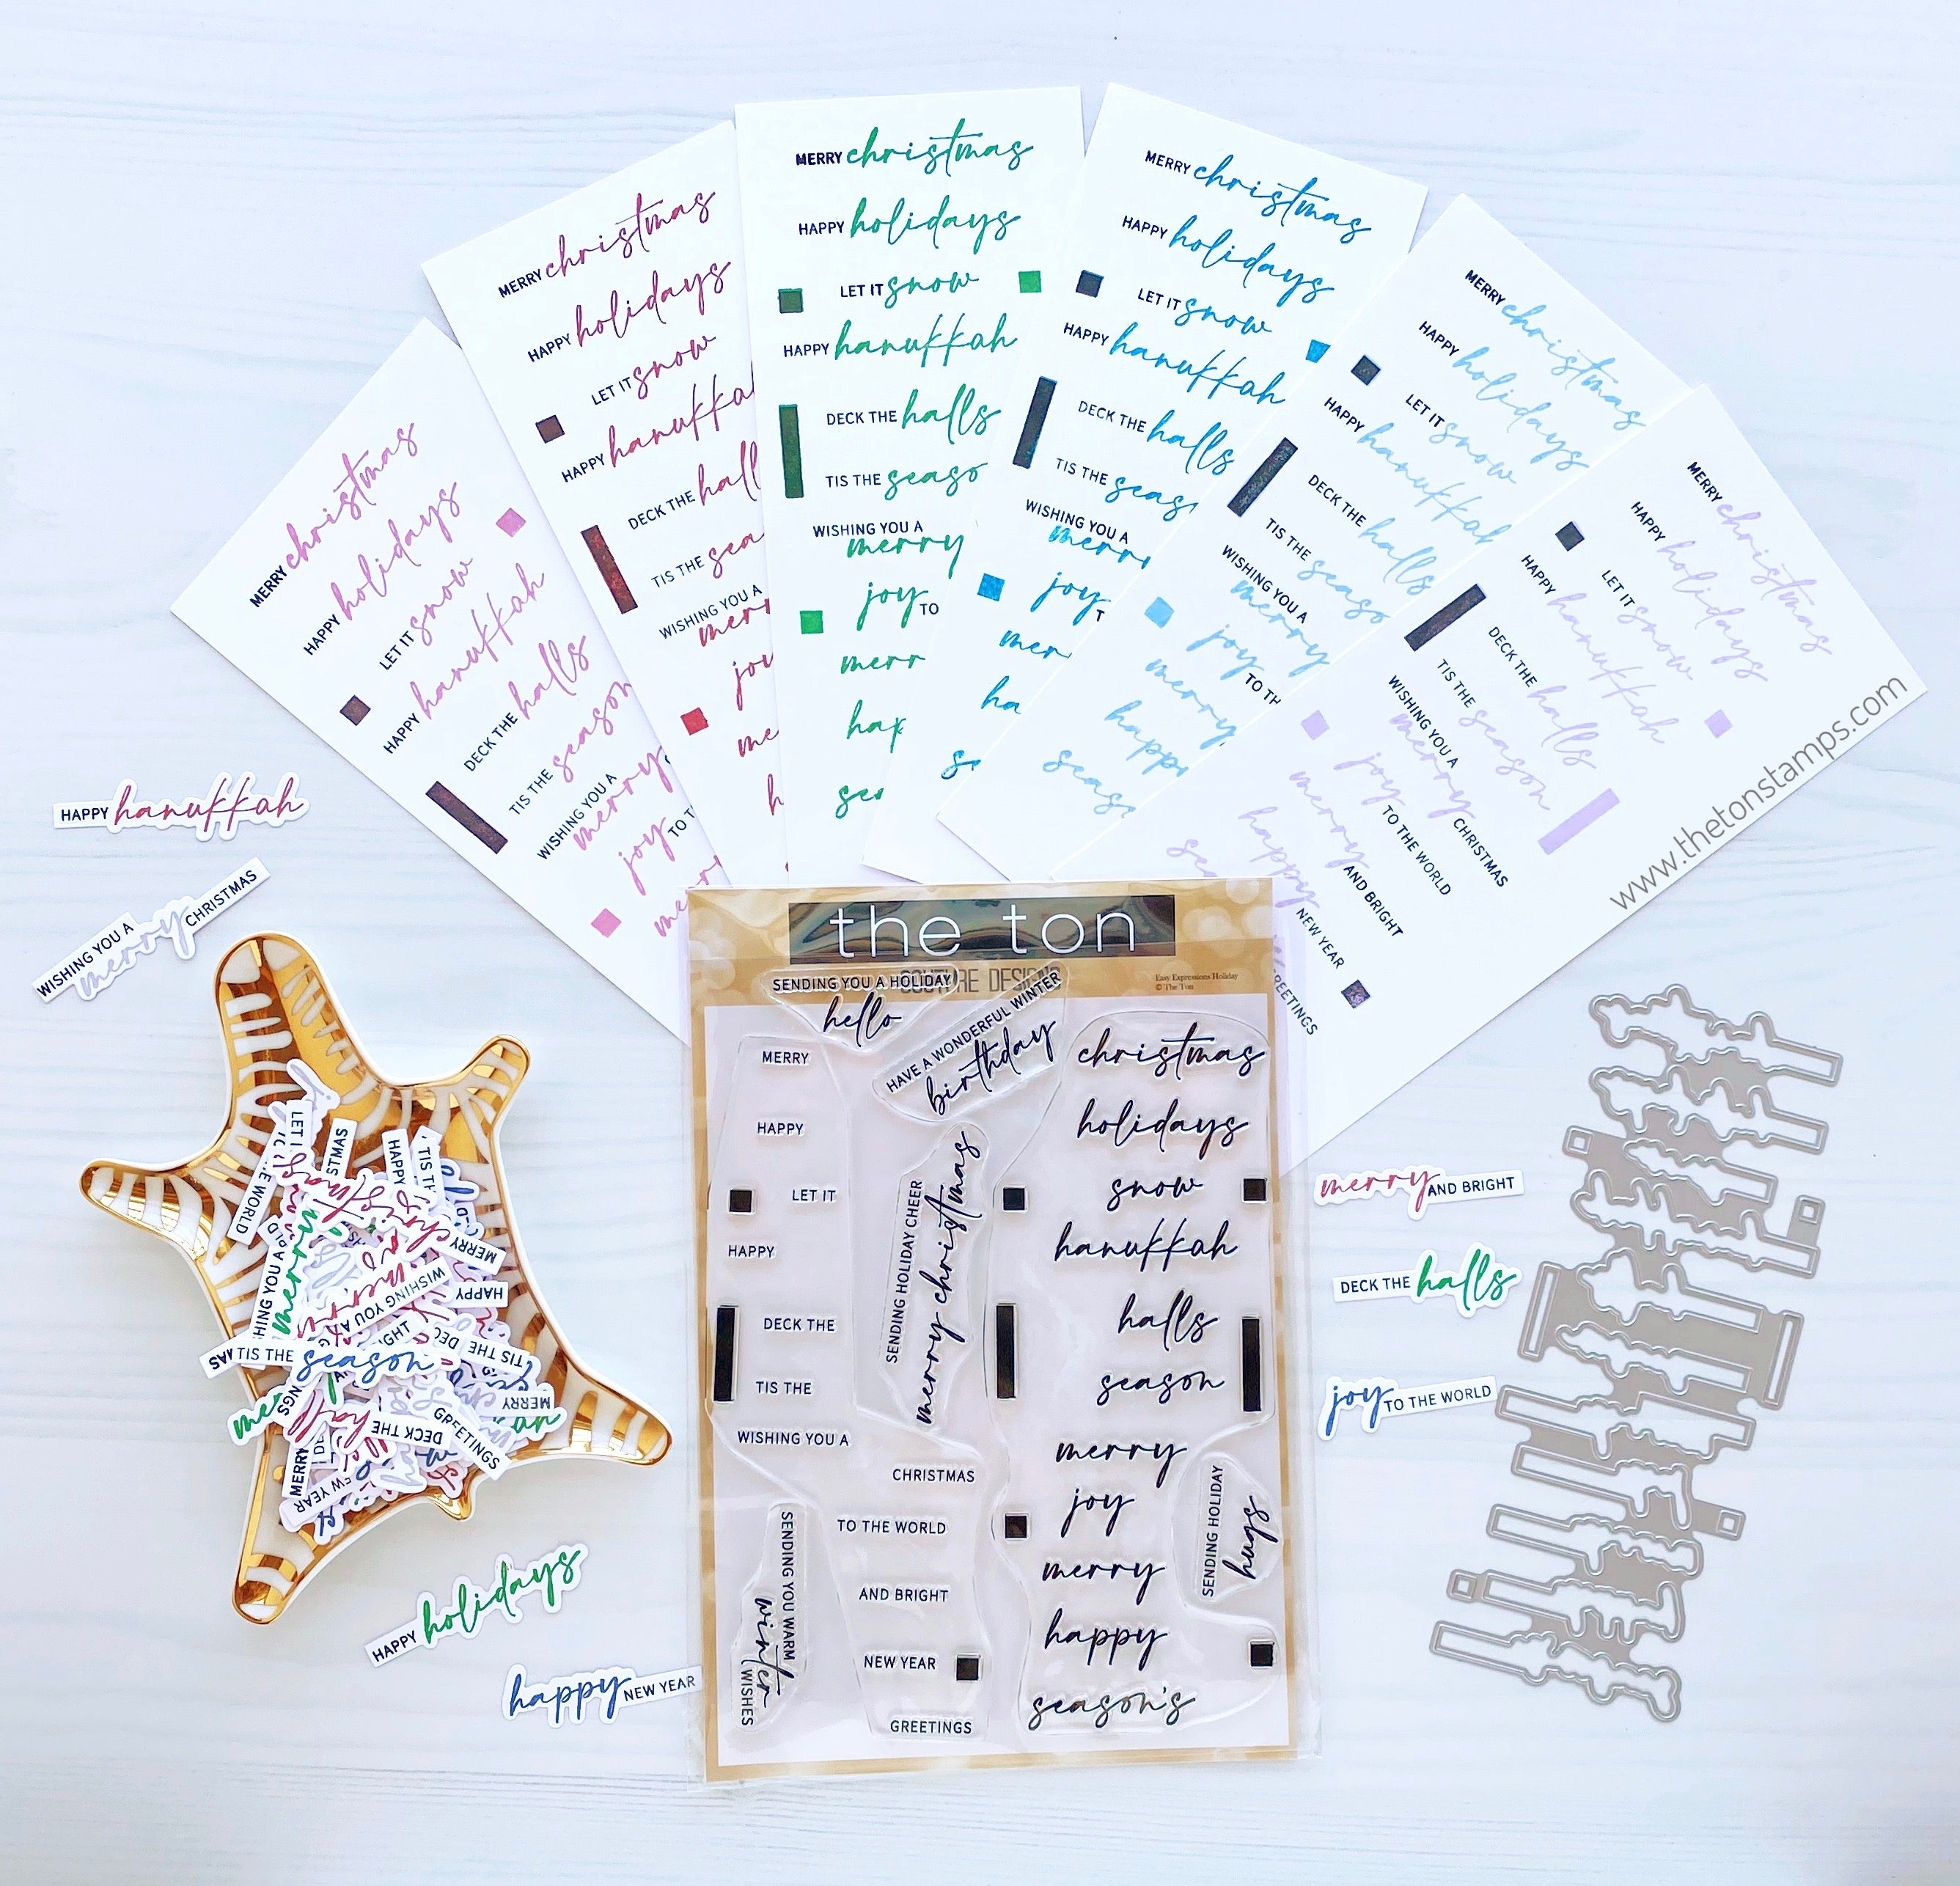 MERRY christmas
HAPPY holidays
LET IT snow
HAPPY hanukkah
DECK THE halls
TIS THE season
WISHING YOU A
merry
joy TO
MERRY christmas
HAPPY holidays
LET IT snow
HAPPY
DECK THE
TIS THE
WISHING YOU A
MERRY christmas
HAPPY holidays
LET IT snow
HAPPY hanukkah
DECK THE halls
TIS THE
WISHING YOU A
merry
joy TO
MERRY christmas
HAPPY holidays
LET IT snow
HAPPY hanukkah
DECK THE halls
TIS THE
WISHING YOU A
joy
MERRY christmas
HAPPY holidays
LET IT snow
HAPPY
DECK THE halls
TIS THE
WISHING YOU A
merry
joy TO
merry
MERRY christmas
HAPPY holidays
LET IT snow
HAPPY hanukkah
DECK THE halls
TIS THE season
WISHING YOU A
merry CHRISTMAS
joy TO THE WORLD
merry AND BRIGHT
happy NEW YEAR
www.thetonstamps.com
HAPPY hanukkah
WISHING YOU A merry CHRISTMAS
the ton
COUTURE DESIGNS
Easy Expressions Holiday
© The Ton
SENDING YOU A HOLIDAY
hello
HAVE A WONDERFUL WINTER
birthday
MERRY
christmas
HAPPY
holidays
LET IT
snow
HAPPY
hanukkah
SENDING HOLIDAY CHEER
merry christmas
DECK THE
halls
TIS THE
season
WISHING YOU A
merry
CHRISTMAS
joy
TO THE WORLD
merry
AND BRIGHT
happy
NEW YEAR
season's
GREETINGS
SENDING YOU WARM
winter WISHES
SENDING HOLIDAY
hugs
merry AND BRIGHT
DECK THE halls
joy TO THE WORLD
TIS THE season
WISHING YOU A
MERRY
HAPPY
DECK THE
GREETINGS
HAPPY holidays
happy NEW YEAR